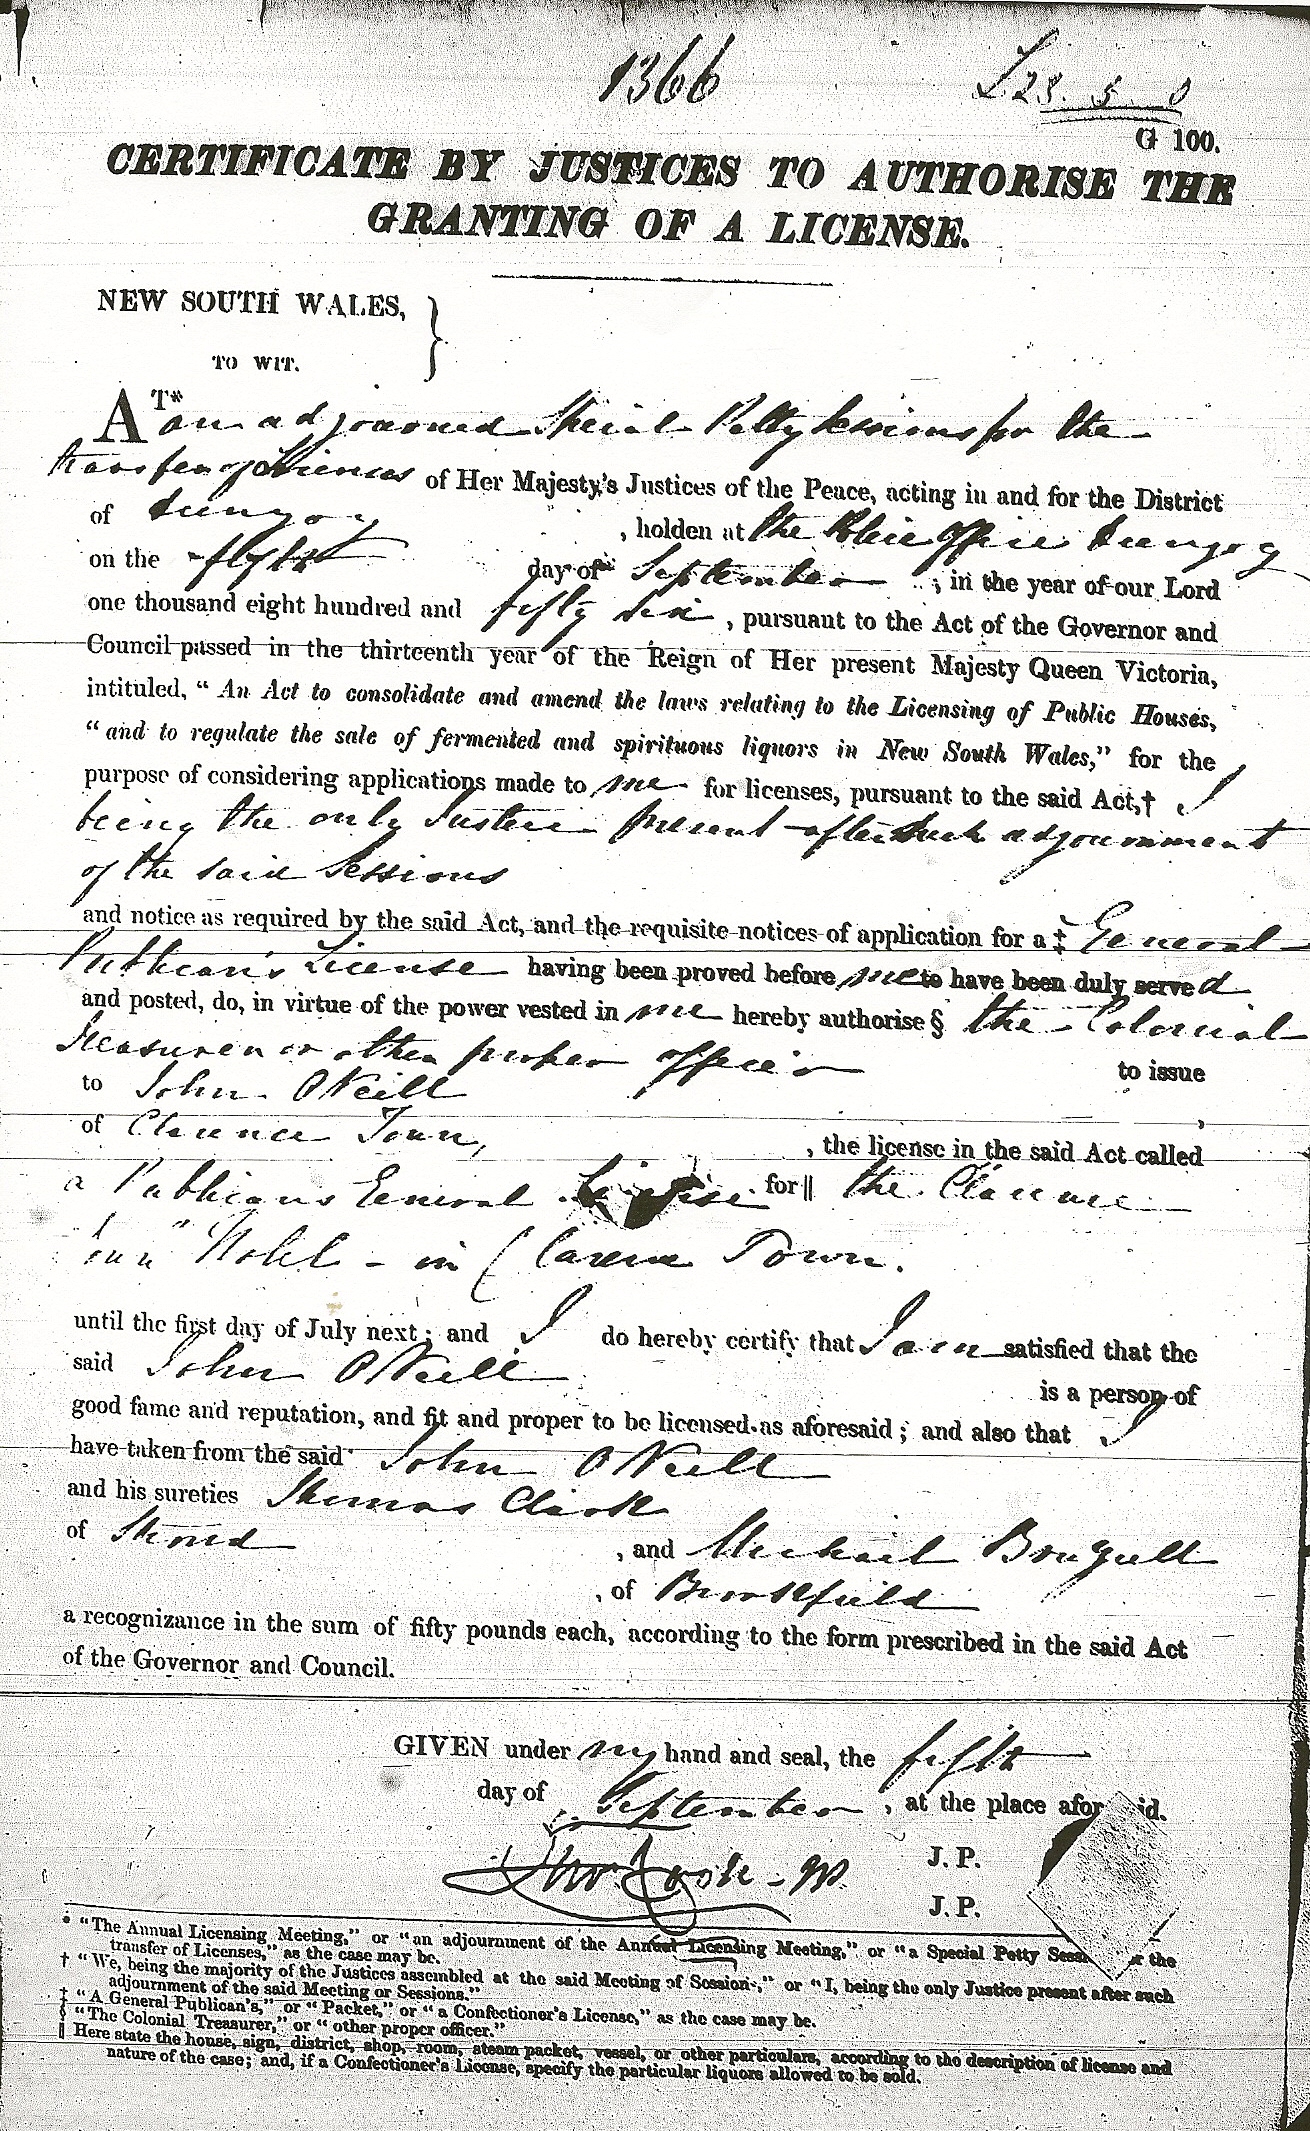 1366
£23. 5. 0
G 100.
CERTIFICATE BY JUSTICES TO AUTHORISE THE
GRANTING OF A LICENSE.
NEW SOUTH WALES, }
TO WIT.
AT* an adjourned Special Petty Sessions for the
transfer of Licenses of Her Majesty's Justices of the Peace, acting in and for the District
of Dungog , holden at the Police Office Dungog
on the fifth day of September , in the year of our Lord
one thousand eight hundred and fifty six , pursuant to the Act of the Governor and
Council passed in the thirteenth year of the Reign of Her present Majesty Queen Victoria,
intituled, “ An Act to consolidate and amend the laws relating to the Licensing of Public Houses,
“ and to regulate the sale of fermented and spirituous liquors in New South Wales,” for the
purpose of considering applications made to me for licenses, pursuant to the said Act,† I
being the only Justice present after such adjournment
of the said Sessions
and notice as required by the said Act, and the requisite notices of application for a ‡ General
Publican's License having been proved before me to have been duly served
and posted, do, in virtue of the power vested in me hereby authorise § the Colonial
Treasurer or other proper officer to issue
to John O'Neill ,
of Clarence Town, , the license in the said Act called
a Publicans General License for || the Clarence
Town" Hotel - in Clarence Town.
until the first day of July next; and I do hereby certify that I am satisfied that the
said John O'Neill is a person of
good fame and reputation, and fit and proper to be licensed as aforesaid; and also that I
have taken from the said John O'Neill
and his sureties Thomas Clark
of Stroud , and Michael
, of Brookfield
a recognizance in the sum of fifty pounds each, according to the form prescribed in the said Act
of the Governor and Council.
GIVEN under my hand and seal, the fifth
day of September , at the place aforesaid.
Thos Cook - J.P.
J.P.
* “The Annual Licensing Meeting,” or “an adjournment of the Annual Licensing Meeting,” or “a Special Petty Sessions for the
transfer of Licenses,” as the case may be.
† “We, being the majority of the Justices assembled at the said Meeting of Session,” or “I, being the only Justice present after such
adjournment of the said Meeting or Sessions.”
‡ “A General Publican's,” or “Packet,” or “a Confectioner's License,” as the case may be.
§ “The Colonial Treasurer,” or “other proper officer.”
|| Here state the house, sign, district, shop, room, steam packet, vessel, or other particulars, according to the description of license and
nature of the case; and, if a Confectioner's License, specify the particular liquors allowed to be sold.